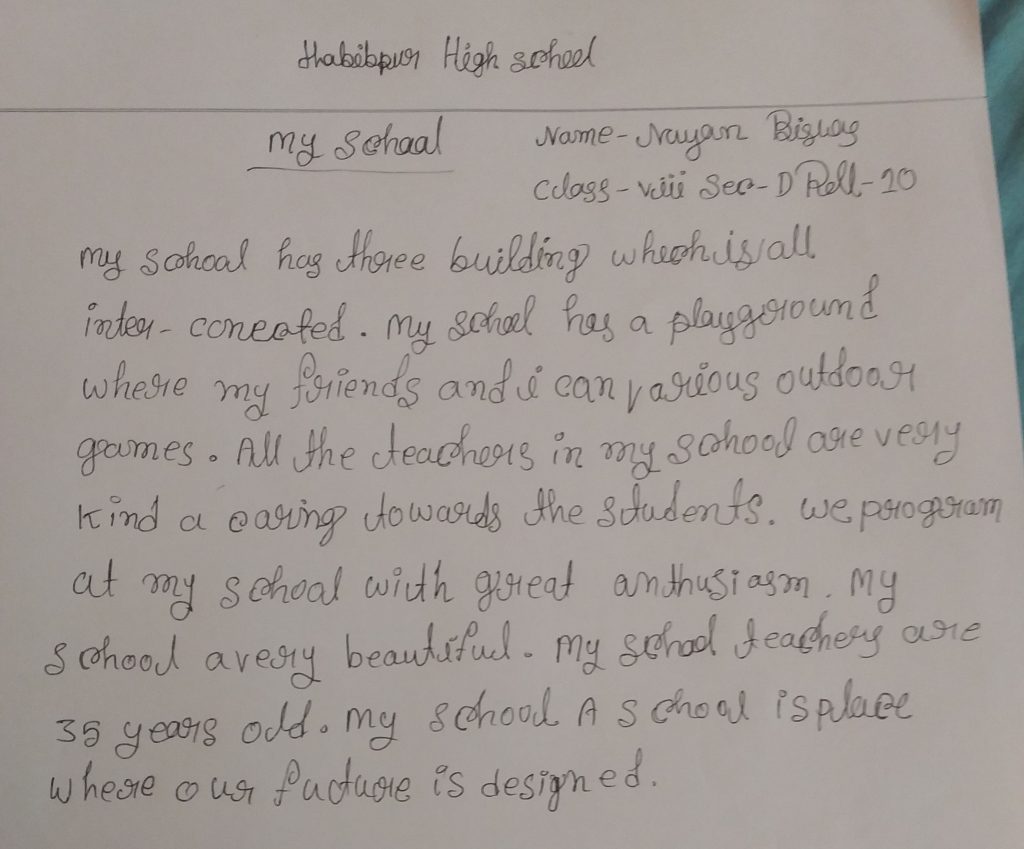 Habibpur High school
My School
Name - Nayan Biswas
Class - viii Sec - D Roll - 20
My school has three building which is all
inter - conected . My school has a playgground
where my friends and i can various outdoor
games . All the teachers in my school are very
kind a caring towards the students . we program
at my school with great anthusiasm . My
school a very beautiful . My school teachers are
35 years old . My school A school is place
where our facture is designed .